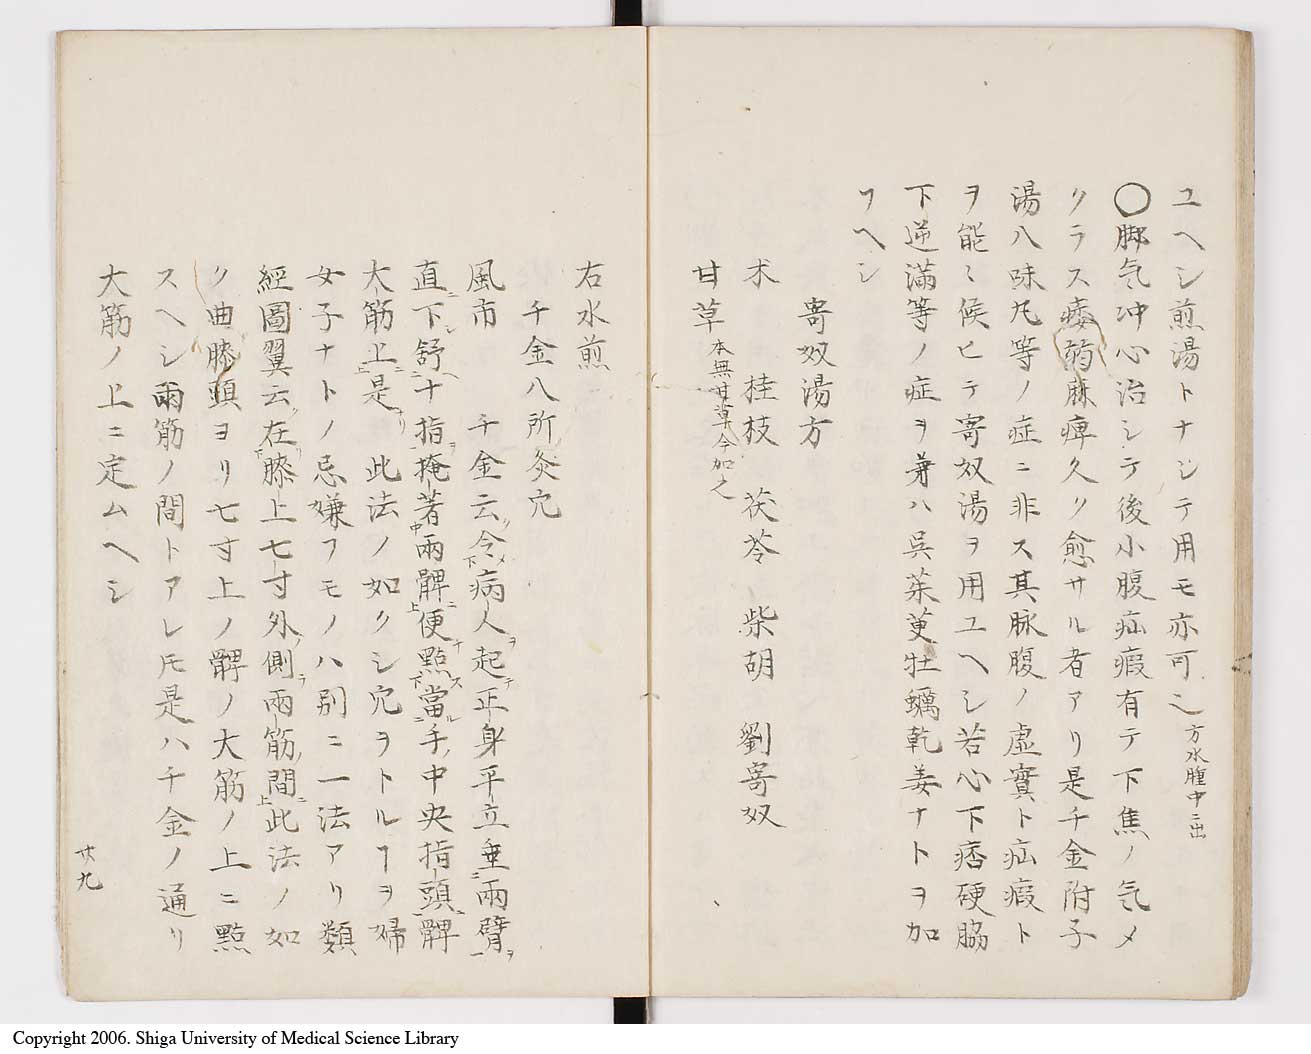 ユヘシ煎湯トナシテ用モ亦可之 方水腫中ニ出
〇脚気冲心治シテ後小腹疝瘕有テ下焦ノ気メ
クラス痿弱麻痺久ク愈サル者アリ是千金附子
湯八味丸等ノ症ニ非ス其脉腹ノ虚實ト疝瘕ト
ヲ能〻候ヒテ寄奴湯ヲ用ユヘシ若心下痞硬脇
下逆滿等ノ症ヲ兼ハ呉茱萸牡蠣乾姜ナトヲ加
フヘシ
寄奴湯方
朮 桂枝 茯苓 柴胡 劉寄奴
甘草 本無甘草今加之
右水煎
千金八所灸穴
風市 千金云令下病人ヲ起テ正身平立垂ニ両臂ヲ一
直下ニ舒十指ヲ掩著中両髀上ニ便點下當ル手ノ中央指頭ニ髀
大筋上ニ是ナリ 此法ノ如クシ穴ヲトルヿヲ婦
女子ナトノ忌嫌フモノハ別ニ一法アリ類
經圖翼云在下膝上七寸外側両筋ノ間上ニ此法ノ如
ク曲膝頭ヨリ七寸上ノ髀ノ大筋ノ上ニ點
スヘシ兩筋ノ間トアレ𪜈是ハ千金ノ通リ
大筋ノ上ニ定ムヘシ
廿九
Copyright 2006. Shiga University of Medical Science Library